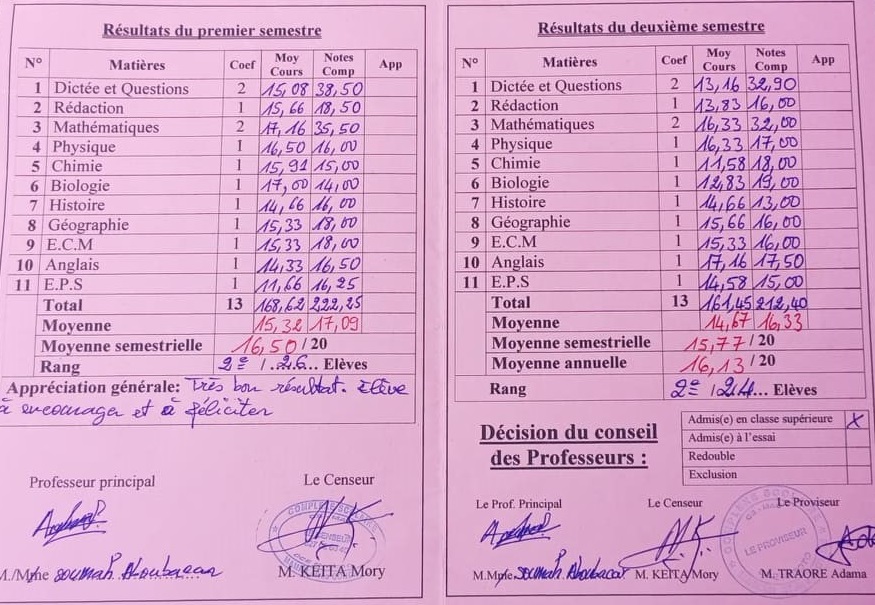 Résultats du premier semestre
N° Matières Coef Moy Cours Notes Comp App
1 Dictée et Questions 2 15,08 38,50
2 Rédaction 1 15,66 18,50
3 Mathématiques 2 17,16 35,50
4 Physique 1 16,50 16,00
5 Chimie 1 15,91 15,00
6 Biologie 1 17,00 14,00
7 Histoire 1 14,66 16,00
8 Géographie 1 15,33 18,00
9 E.C.M 1 15,33 18,00
10 Anglais 1 14,33 16,50
11 E.P.S 1 11,66 16,25
Total 13 168,62 222,25
Moyenne 15,32 17,09
Moyenne semestrielle 16,50/20
Rang 2e /.26... Elèves
Appréciation générale: Très bon résultat. Elève
à encourager et à féliciter
Professeur principal Le Censeur
M./Mme Soumah Aboubacar M. KEITA Mory
Résultats du deuxième semestre
N° Matières Coef Moy Cours Notes Comp App
1 Dictée et Questions 2 13,16 32,90
2 Rédaction 1 13,83 16,00
3 Mathématiques 2 16,33 32,00
4 Physique 1 16,33 17,00
5 Chimie 1 11,58 18,00
6 Biologie 1 12,83 19,00
7 Histoire 1 14,66 13,00
8 Géographie 1 15,66 16,00
9 E.C.M 1 15,33 16,00
10 Anglais 1 17,16 17,50
11 E.P.S 1 14,58 15,00
Total 13 161,45 212,40
Moyenne 14,67 16,33
Moyenne semestrielle 15,77/20
Moyenne annuelle 16,13/20
Rang 2e /24... Elèves
Décision du conseil
des Professeurs :
Admis(e) en classe supérieure X
Admis(e) à l'essai
Redouble
Exclusion
Le Prof. Principal Le Censeur Le Proviseur
LE PROVISEUR
M.Mme Soumah Aboubacar M. KEITA Mory M. TRAORE Adama